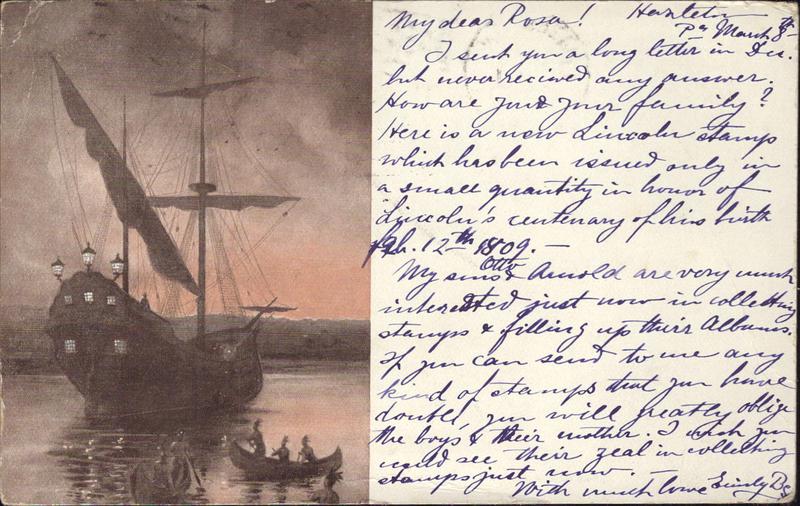 My dear Rosa! Hazleton
Pa March 8th
I sent you a long letter in Dec.
but never recieved any answer.
How are you & your family?
Here is a new Lincoln stamp
which has been issued only in
a small quantity in honor of
Lincoln's centenary of his birth
Feb. 12th 1809. —
My sons Otto & Arnold are very much
interested just now in collecting
stamps & filling up their Albums.
If you can send to me any
kind of stamps that you have
double, you will greatly oblige
the boys & their mother. I wish you
could see their zeal in collecting
stamps just now. —
With much love Emily